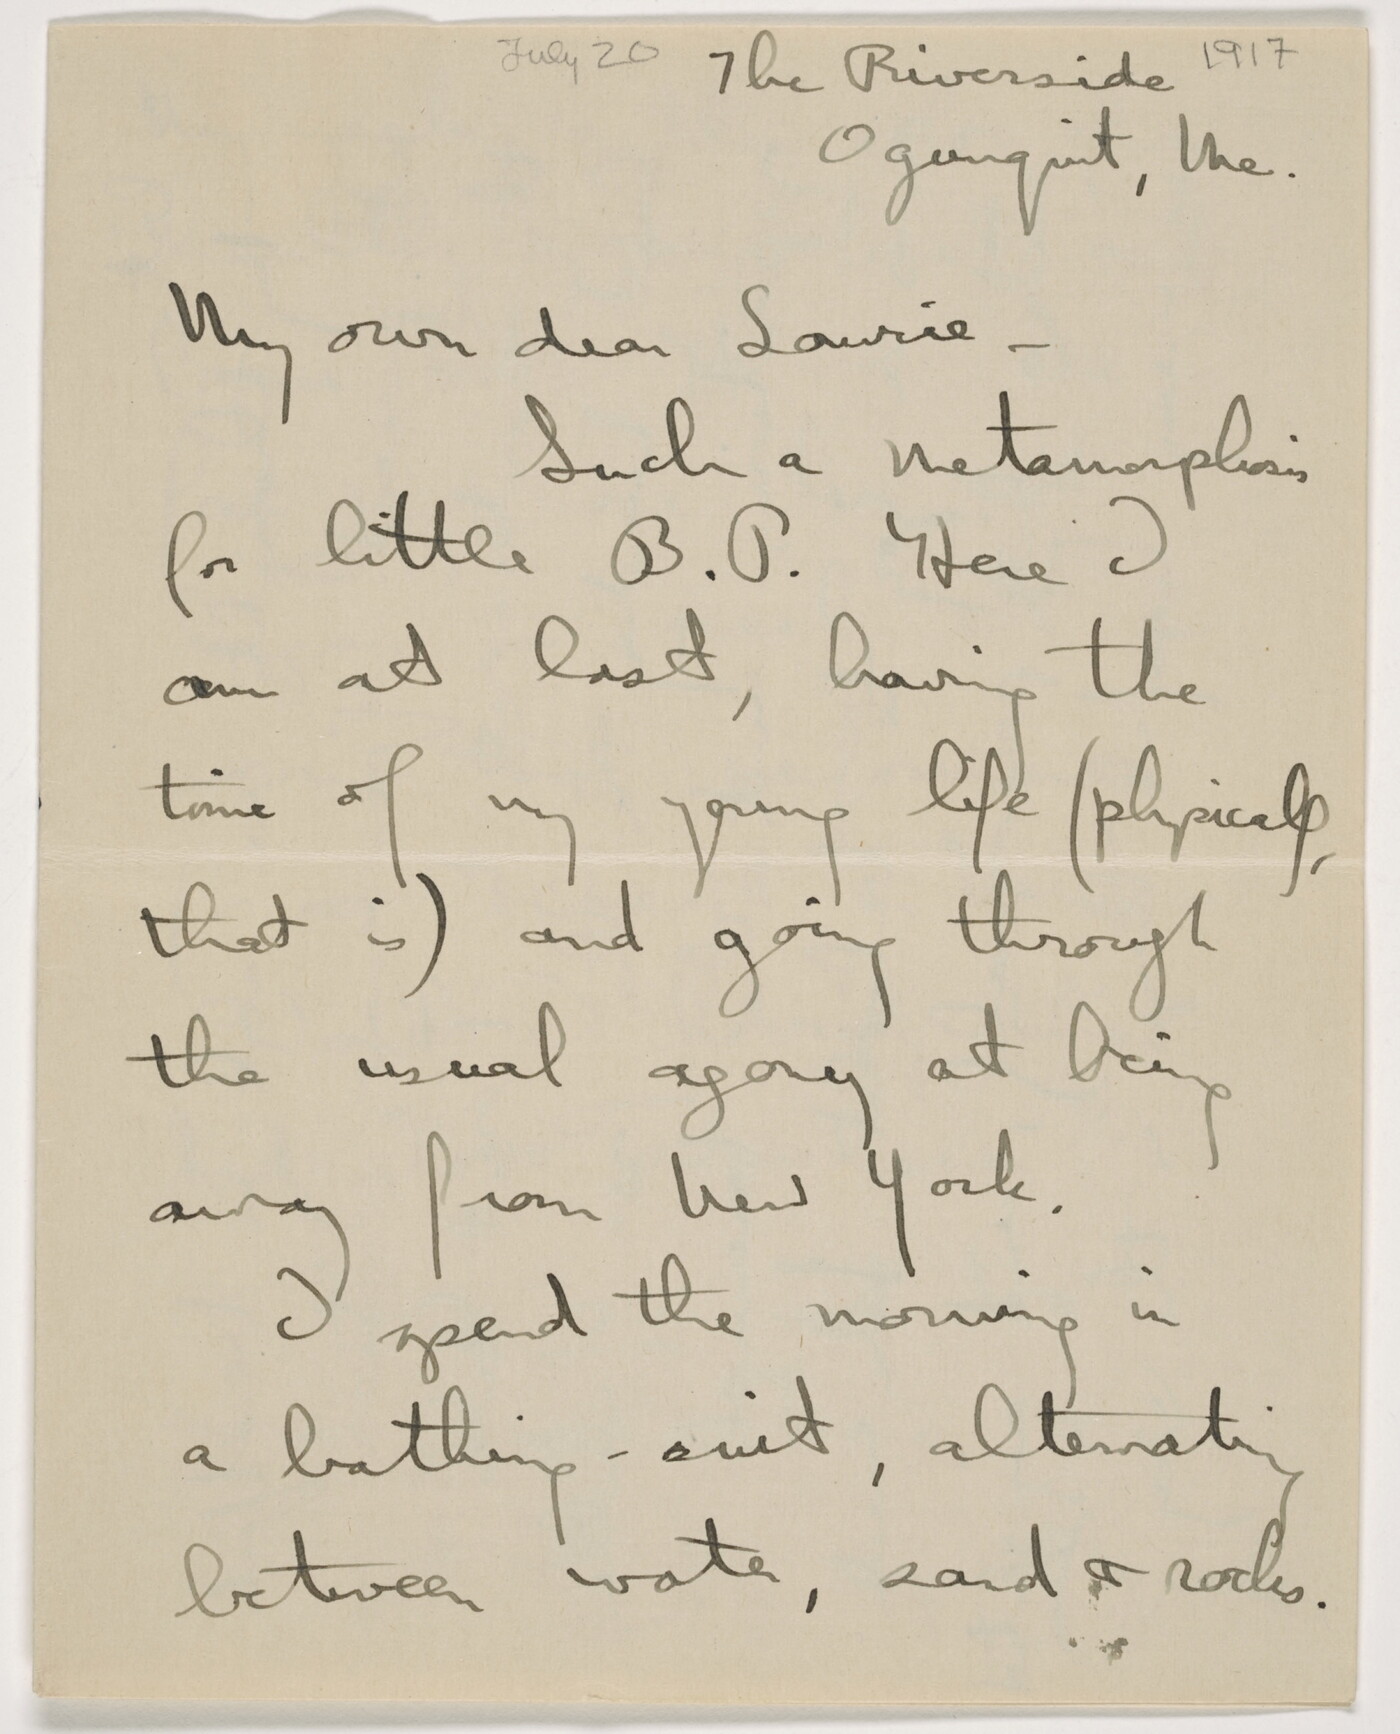 July 20 The Riverside 1917
Ogunquit, Me.
My own dear Laurie –
Such a metamorphosis
for little B.P. Here I
am at last, having the
time of my young life (physically,
that is) and going through
the usual agony at being
away from New York.
I spend the morning in
a bathing-suit, alternating
between water, sand & rocks.